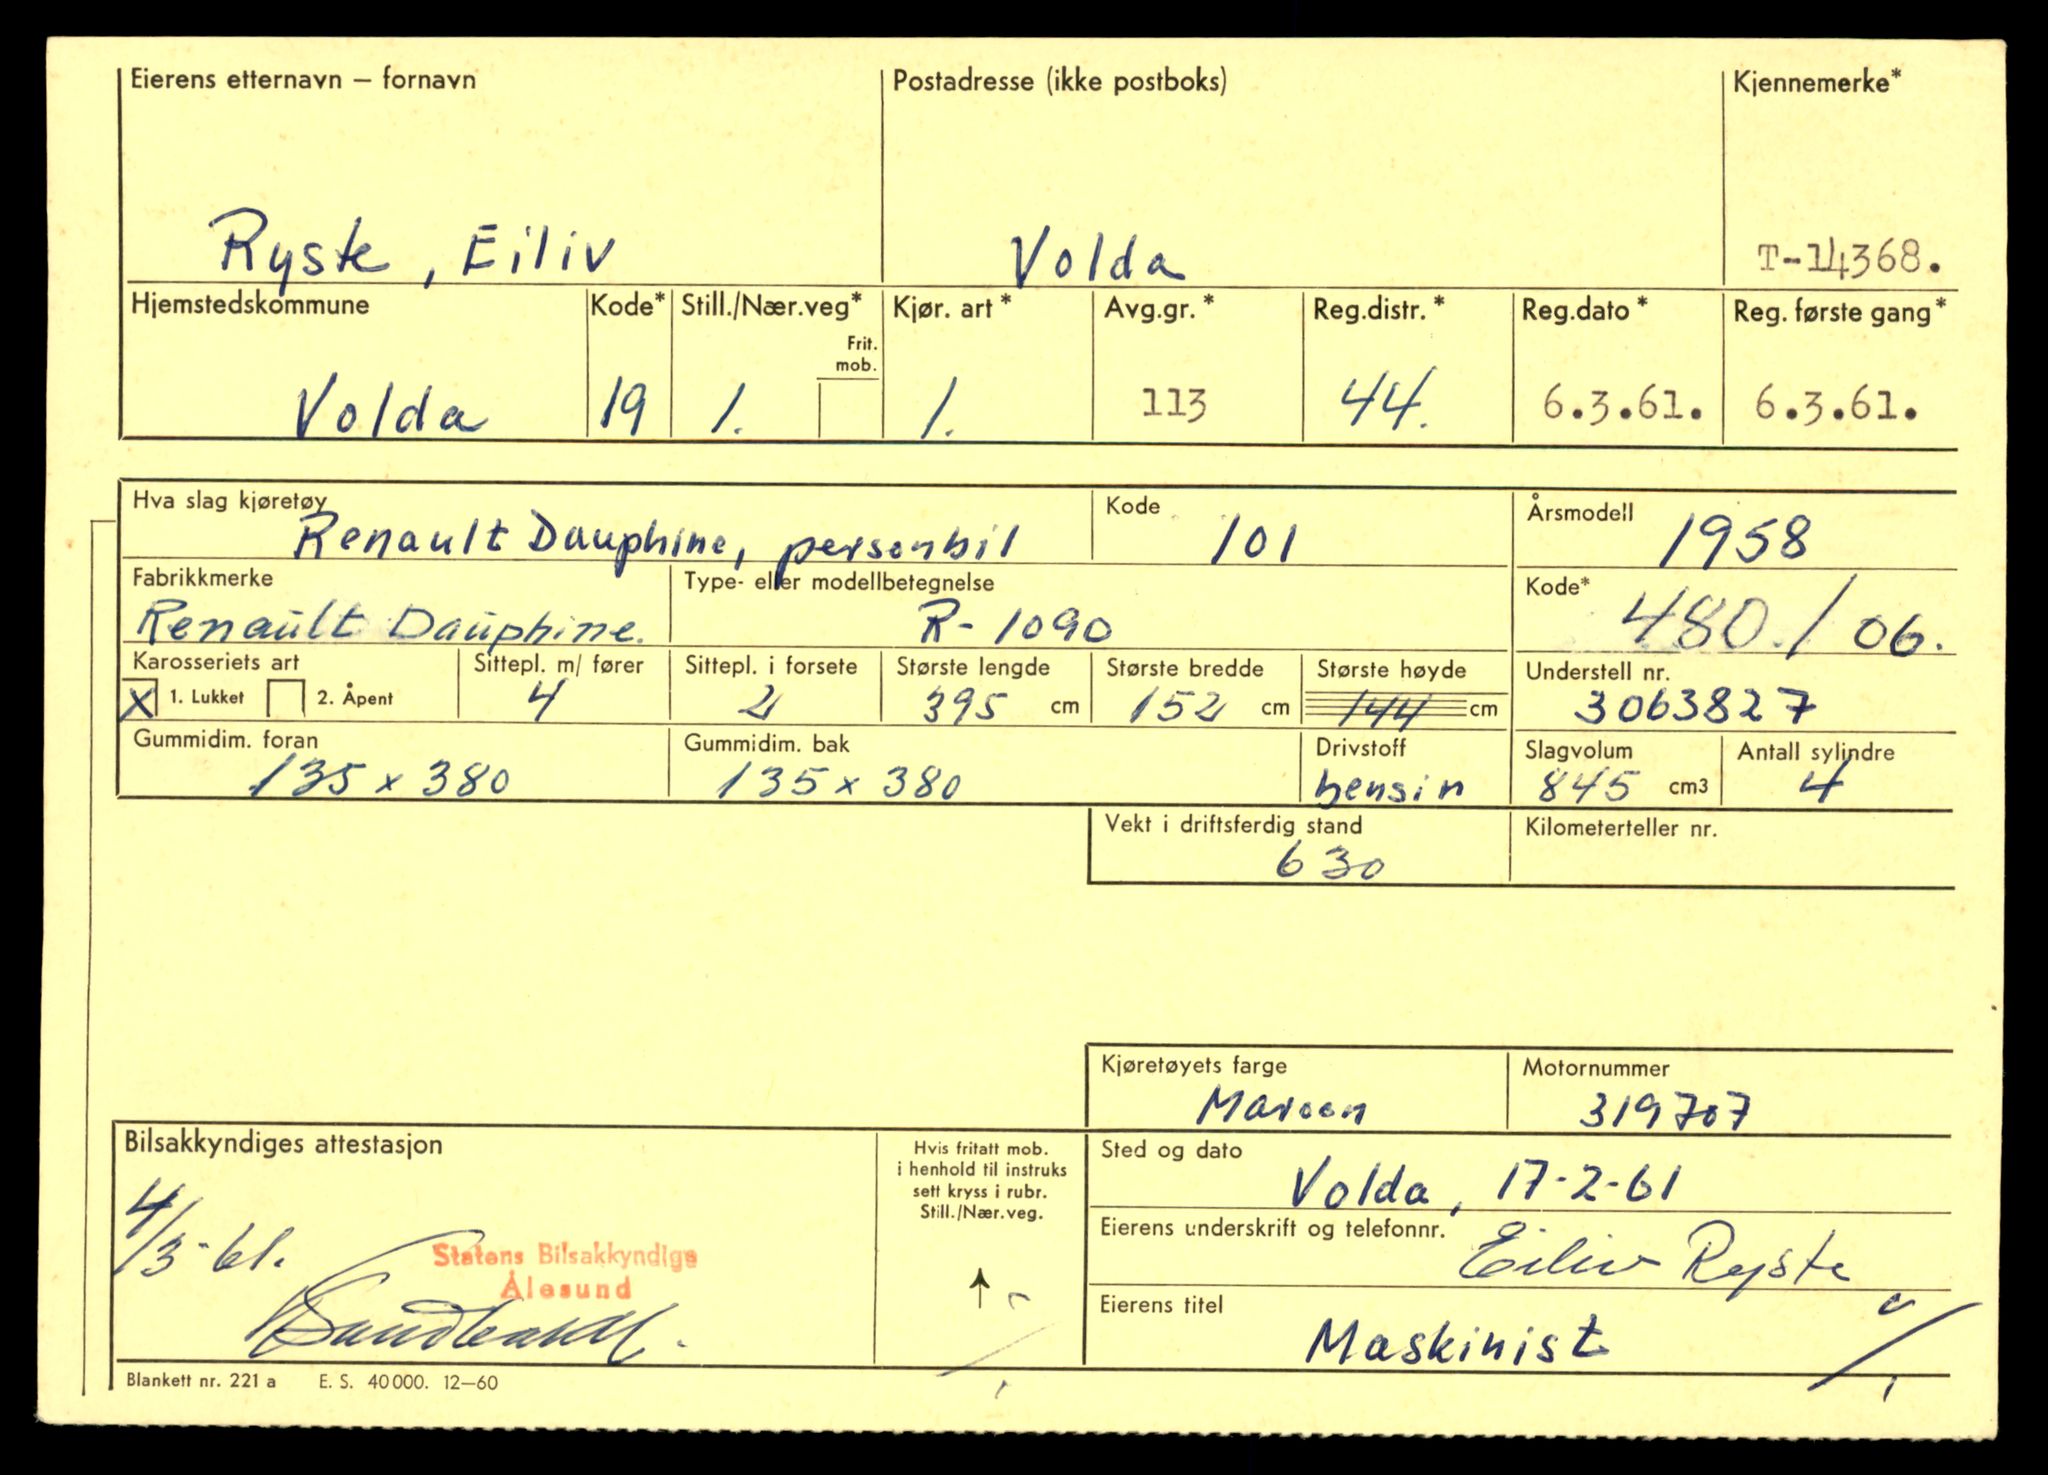 Eierens etternavn – fornavn Postadresse (ikke postboks) Kjennemerke*
Ryste, Eiliv Volda T-14368.
Hjemstedskommune Kode* Still./Nær.veg* Kjør. art* Avg.gr.* Reg.distr.* Reg.dato* Reg. første gang*
Frit.
mob.
Volda 19 1. 1. 113 44. 6.3.61. 6.3.61.
Hva slag kjøretøy Kode Årsmodell
Renault Dauphine, personbil 101 1958
Fabrikkmerke Type- eller modellbetegnelse Kode*
Renault Dauphine. R-1090 480./06.
Karosseriets art Sittepl. m/ fører Sittepl. i forsete Største lengde Største bredde Største høyde Understell nr.
X 1. Lukket 2. Åpent 4 2 395 cm 152 cm 144 cm 3063827
Gummidim. foran Gummidim. bak Drivstoff Slagvolum Antall sylindre
135 x 380 135 x 380 bensin 845 cm3 4
Vekt i driftsferdig stand Kilometerteller nr.
630
Kjøretøyets farge Motornummer
Maroon 319707
Bilsakkyndiges attestasjon Hvis fritatt mob.
i henhold til instruks
sett kryss i rubr.
Still./Nær.veg.
Sted og dato
Volda, 17-2-61
4/3-61.
Eierens underskrift og telefonnr.
Eiliv Ryste
Statens Bilsakkyndige
Ålesund
Eierens titel
Maskinist
Blankett nr. 221 a E. S. 40 000. 12–60